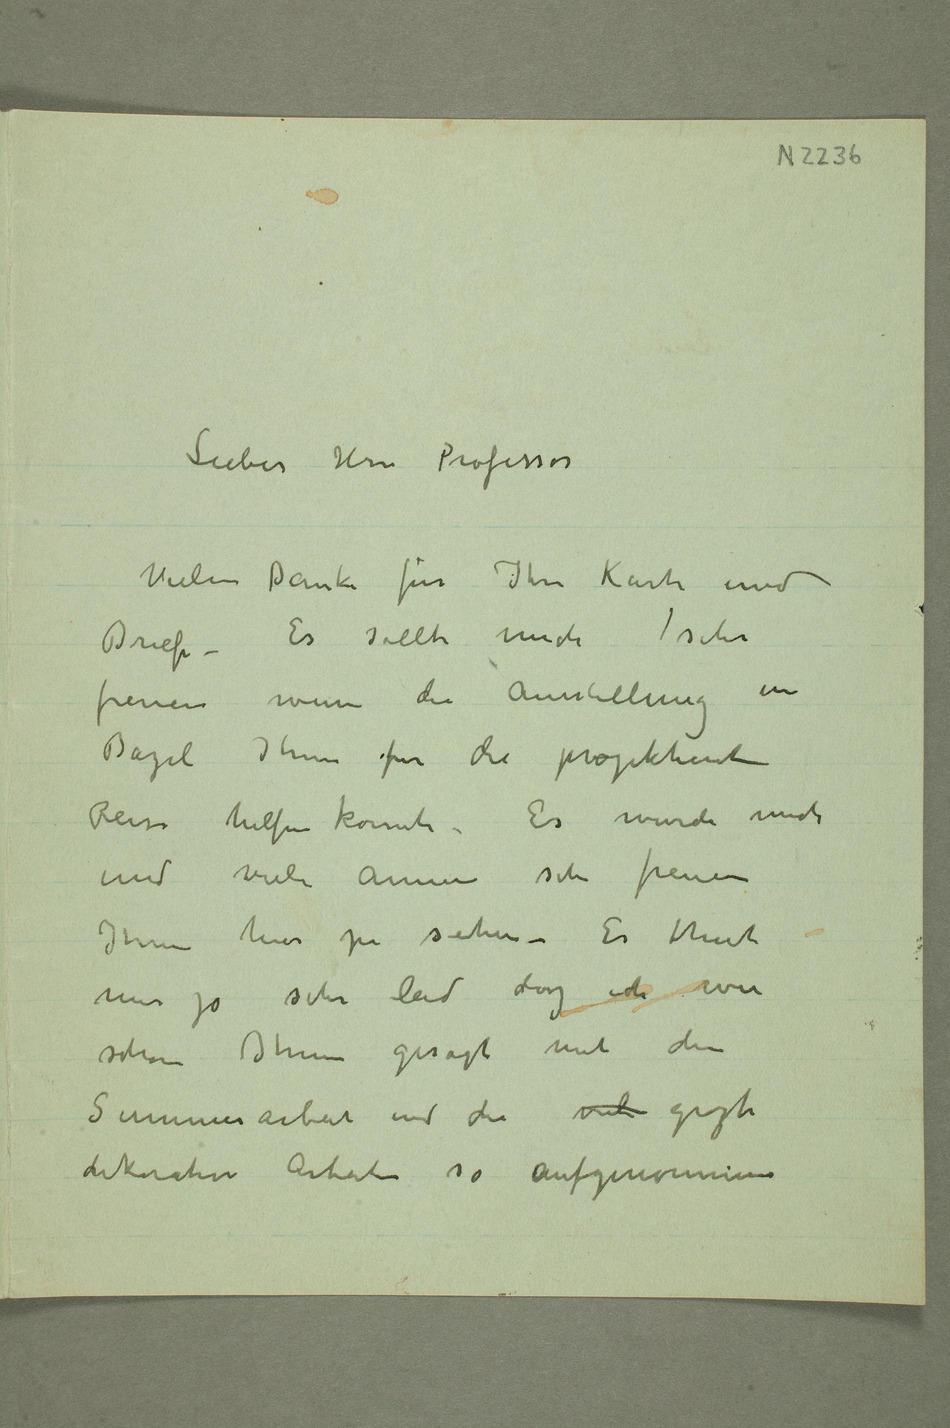 N 2236
Lieber Herr Professor
Vielen Danke für Ihre Karte und
Briefe – Es sollte mich sehr
freuen wenn die Ausstellung in
Bazel Ihnen fur die projektierte
Reise helfen konnte – Es wurde mich
und viele Annen sehr freuen
Ihnen hier zu sehen – Es thut
mir jo sehr leid dasz ich wie
schon Ihnen gesagt mit den
Summerarbeit und die viele groszte
dekorative Arbeiten so aufgenommen